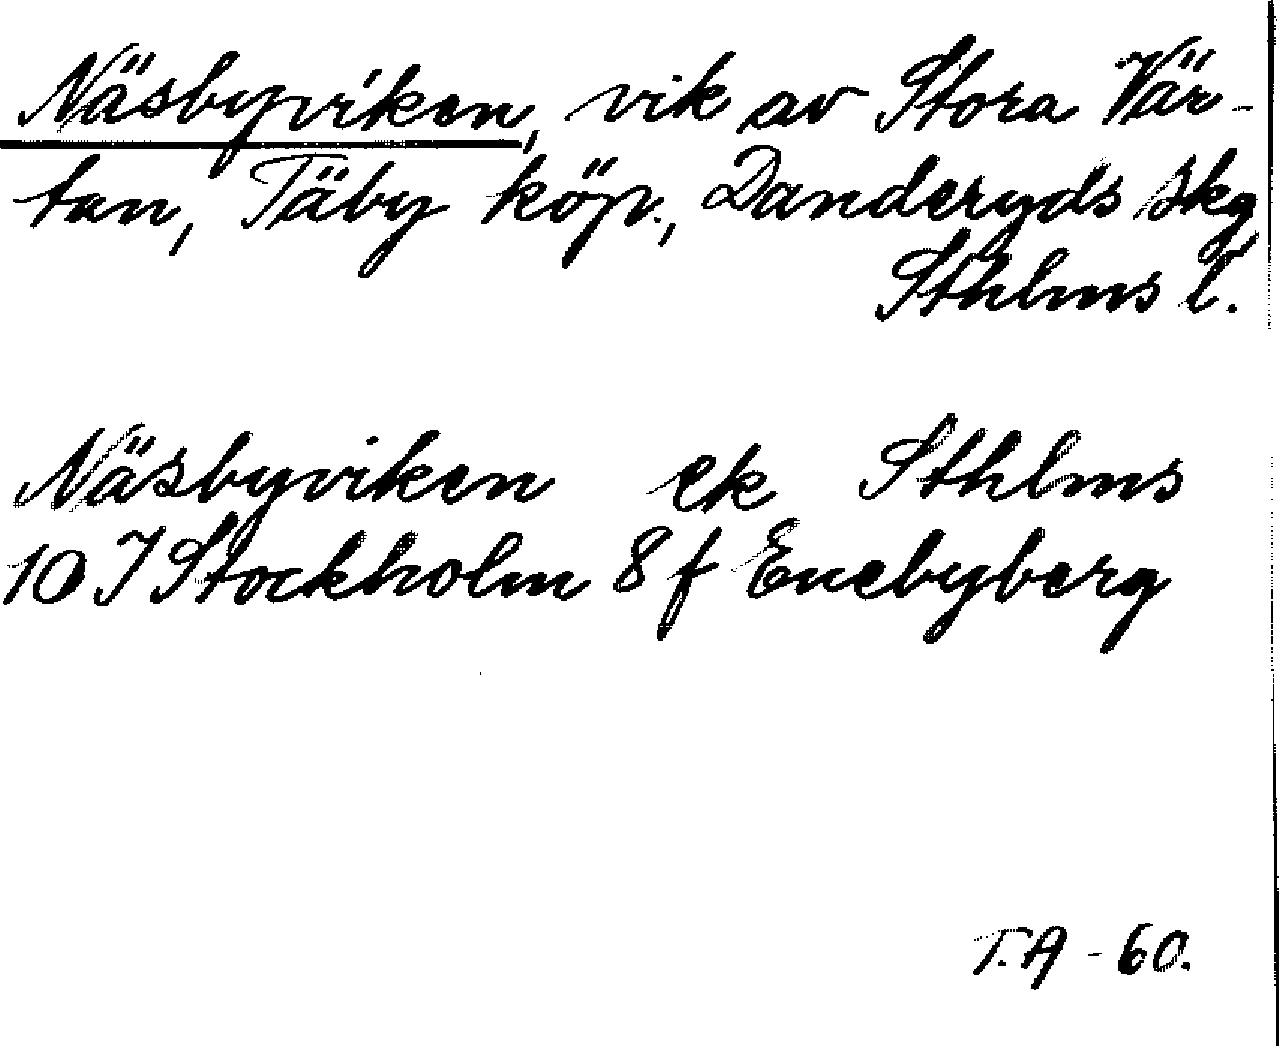 Näsbyviken, vik av Stora Vär-
tan, Täby köp., Danderyds skg,
Sthlms l.
Näsbyviken ek Sthlms
10 I Stockholm 8 f Enebyberg
T.A - 60.